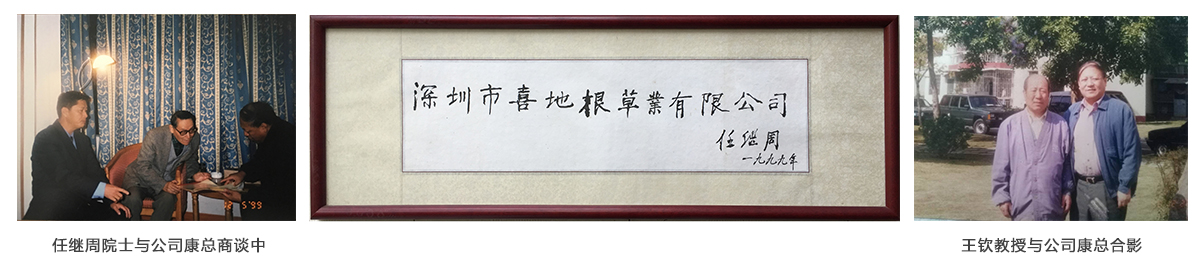 深圳市喜地根草業有限公司
任继周
一九九九年
5'99
任继周院士与公司康总商谈中
王钦教授与公司康总合影